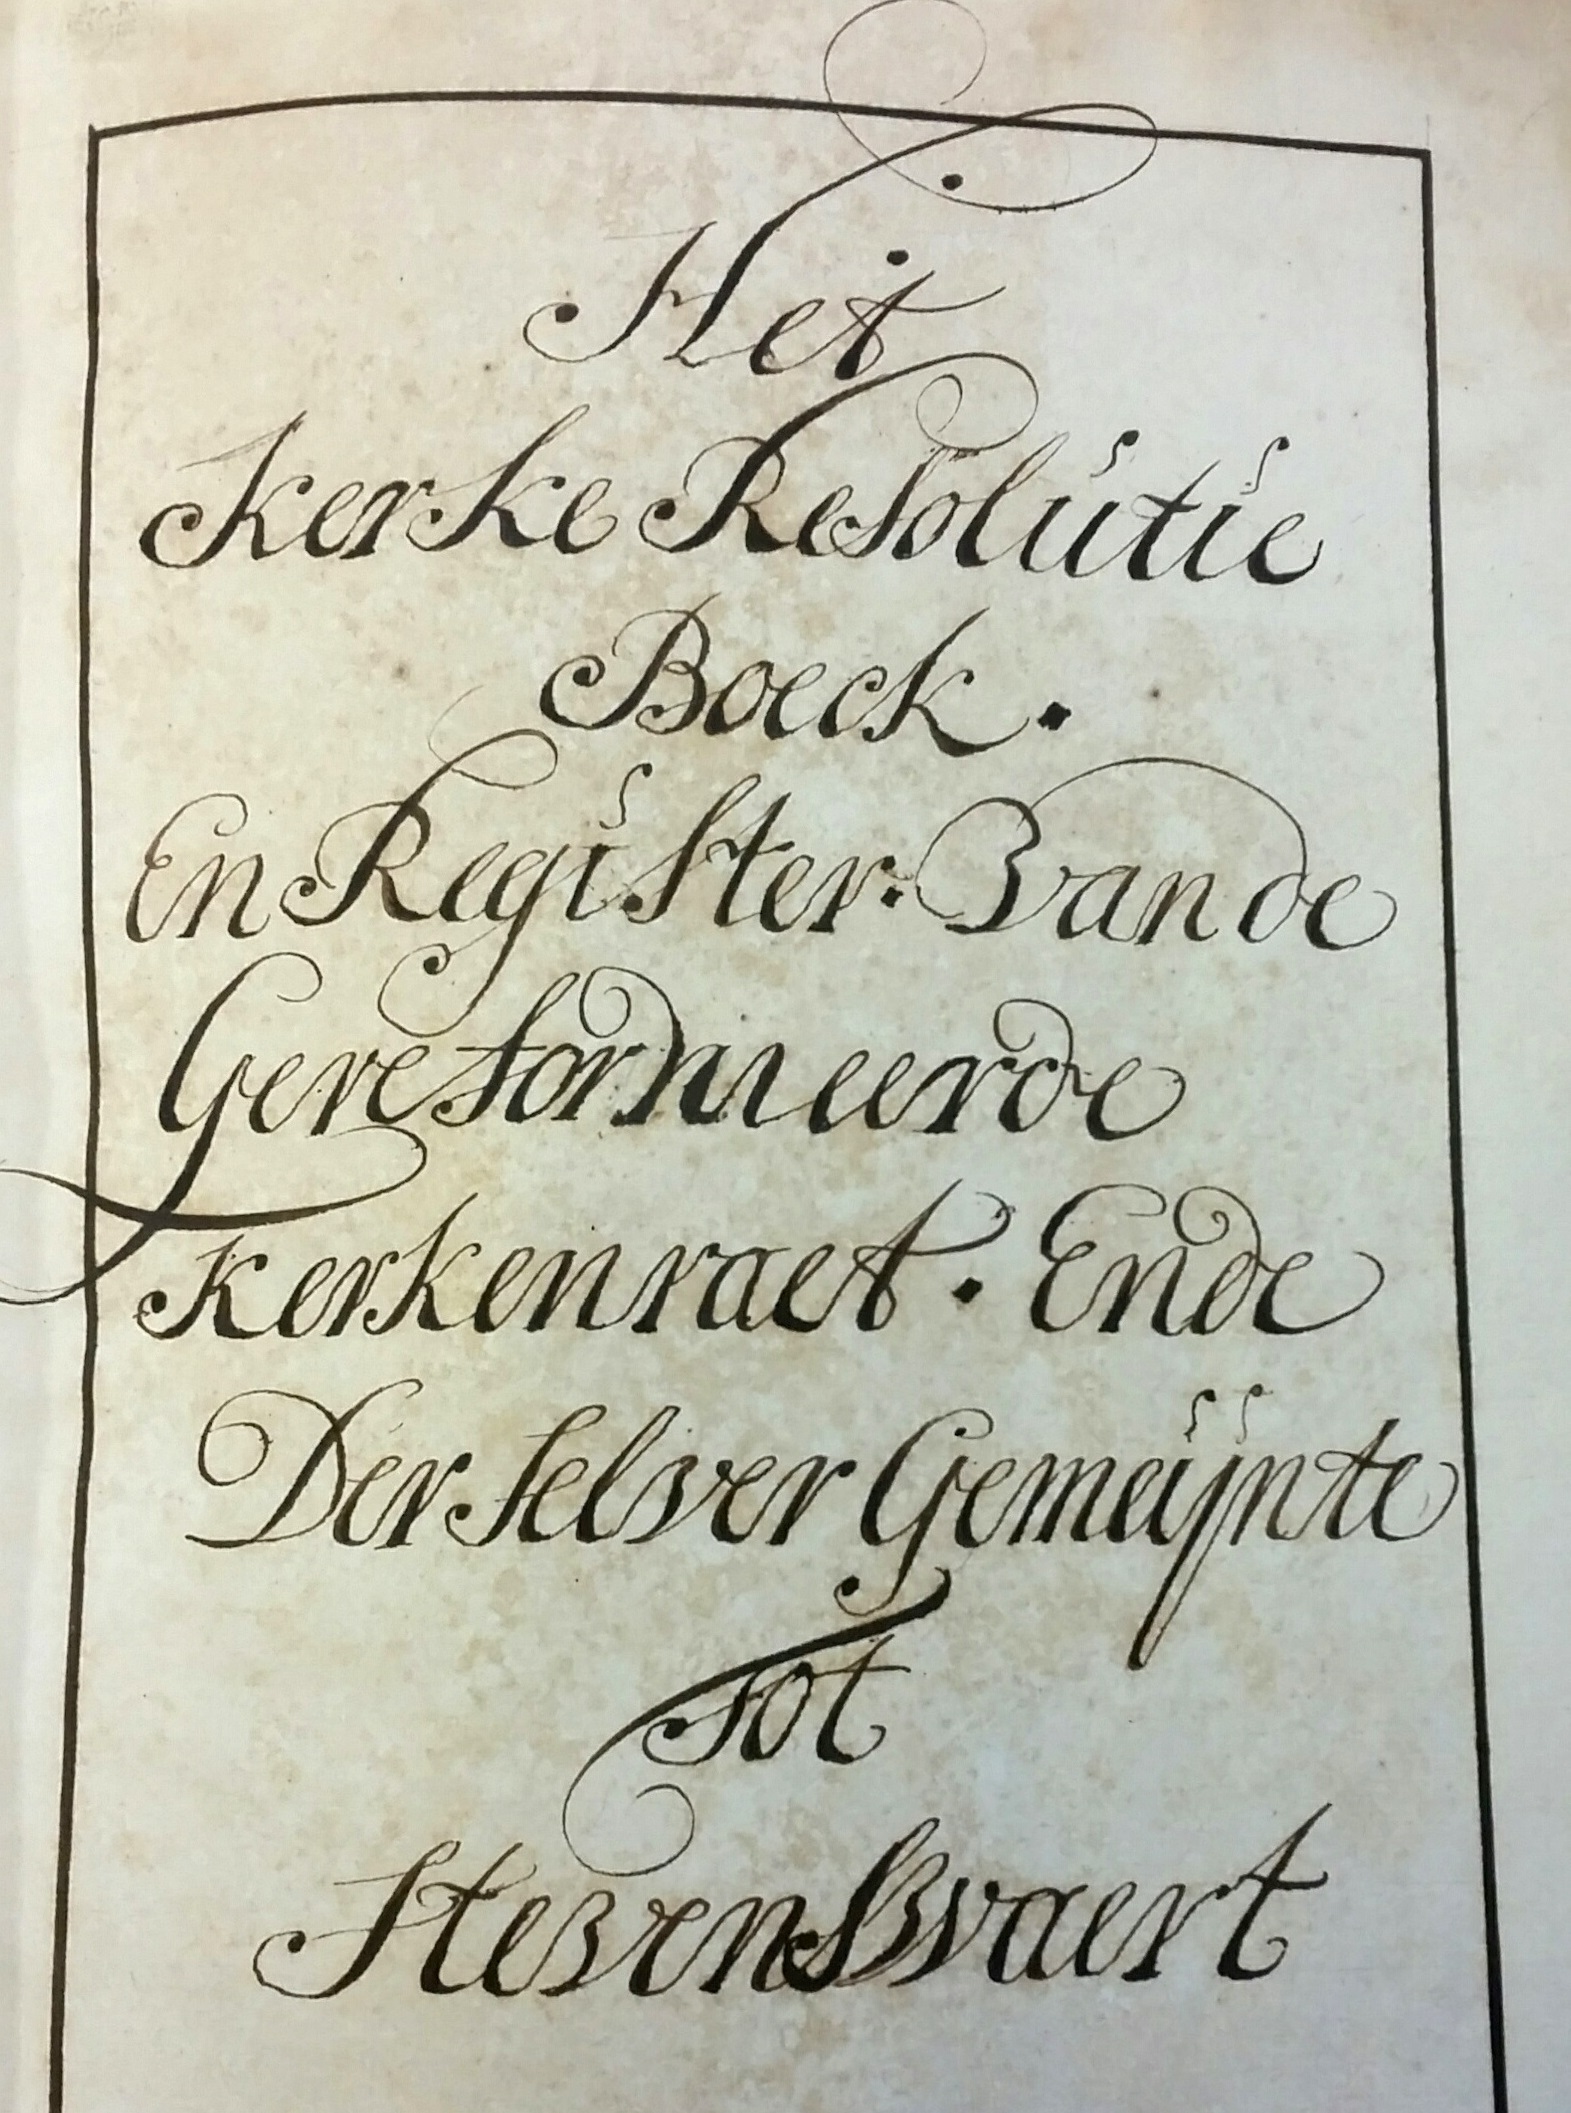 Het
Kerke Resolutie
Boeck.
En Register. Vande
Gereformeerde
Kerkenraet. Ende
Der selver Gemeijnte
tot
Stevensvaert